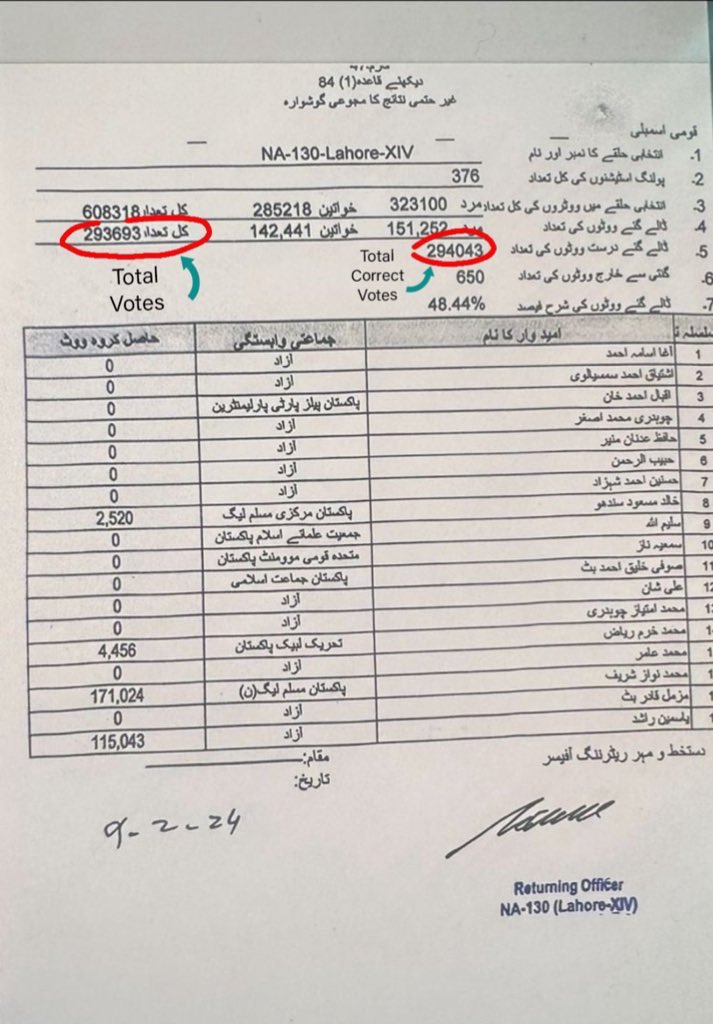 دیکھئے قاعدہ(1) 84
غیر حتمی نتائج کا مجموعی گوشوارہ
قومی اسمبلی
1- انتخابی حلقے کا نمبر اور نام NA-130-Lahore-XIV
2- پولنگ اسٹیشنوں کی کل تعداد 376
3- انتخابی حلقے میں ووٹروں کی کل تعداد مرد 323100 خواتین 285218 کل تعداد 608318
4- ڈالے گئے ووٹوں کی تعداد مرد 151,252 خواتین 142,441 کل تعداد 293693
5- ڈالے گئے درست ووٹوں کی تعداد 294043
Total Correct Votes
Total Votes
6- گنتی سے خارج ووٹوں کی تعداد 650
7- ڈالے گئے ووٹوں کی شرح فیصد 48.44%
سلسلہ امیدوار کا نام جماعتی وابستگی حاصل کردہ ووٹ
1 آغا اسامہ احمد آزاد 0
2 اشتیاق احمد آزاد 0
3 اقبال احمد خان پاکستان پیپلز پارٹی پارلیمنٹرین 0
4 چوہدری محمد اصغر آزاد 0
5 حافظ عدنان منیر آزاد 0
6 حبیب الرحمن آزاد 0
7 حسنین احمد شہزاد آزاد 0
8 خالد مسعود سندھو پاکستان مرکزی مسلم لیگ 2,520
9 سلیم اللہ جمعیت علمائے اسلام پاکستان 0
10 سمعیہ ناز متحدہ قومی موومنٹ پاکستان 0
11 صوفی خلیق احمد بٹ پاکستان جماعت اسلامی 0
علی شان آزاد 0
محمد امتیاز چوہدری آزاد 0
محمد خرم ریاض تحریک لبیک پاکستان 4,456
محمد عامر آزاد 0
محمد نواز شریف پاکستان مسلم لیگ(ن) 171,024
مزمل قادر بٹ آزاد 0
یاسمین راشد آزاد 115,043
دستخط و مہر ریٹرننگ آفیسر
مقام:
تاریخ:
9-2-24
Returning Officer
NA-130 (Lahore-XIV)